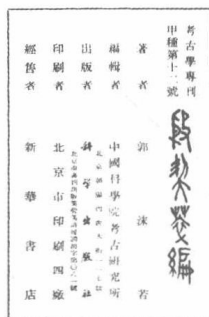 考古學專刊
甲種第十二號
殷契粹編
著者 郭沫若
編輯者 中國科學院考古研究所
出版者 科學出版社
印刷者 北京市印刷四廠
經售者 新華書店